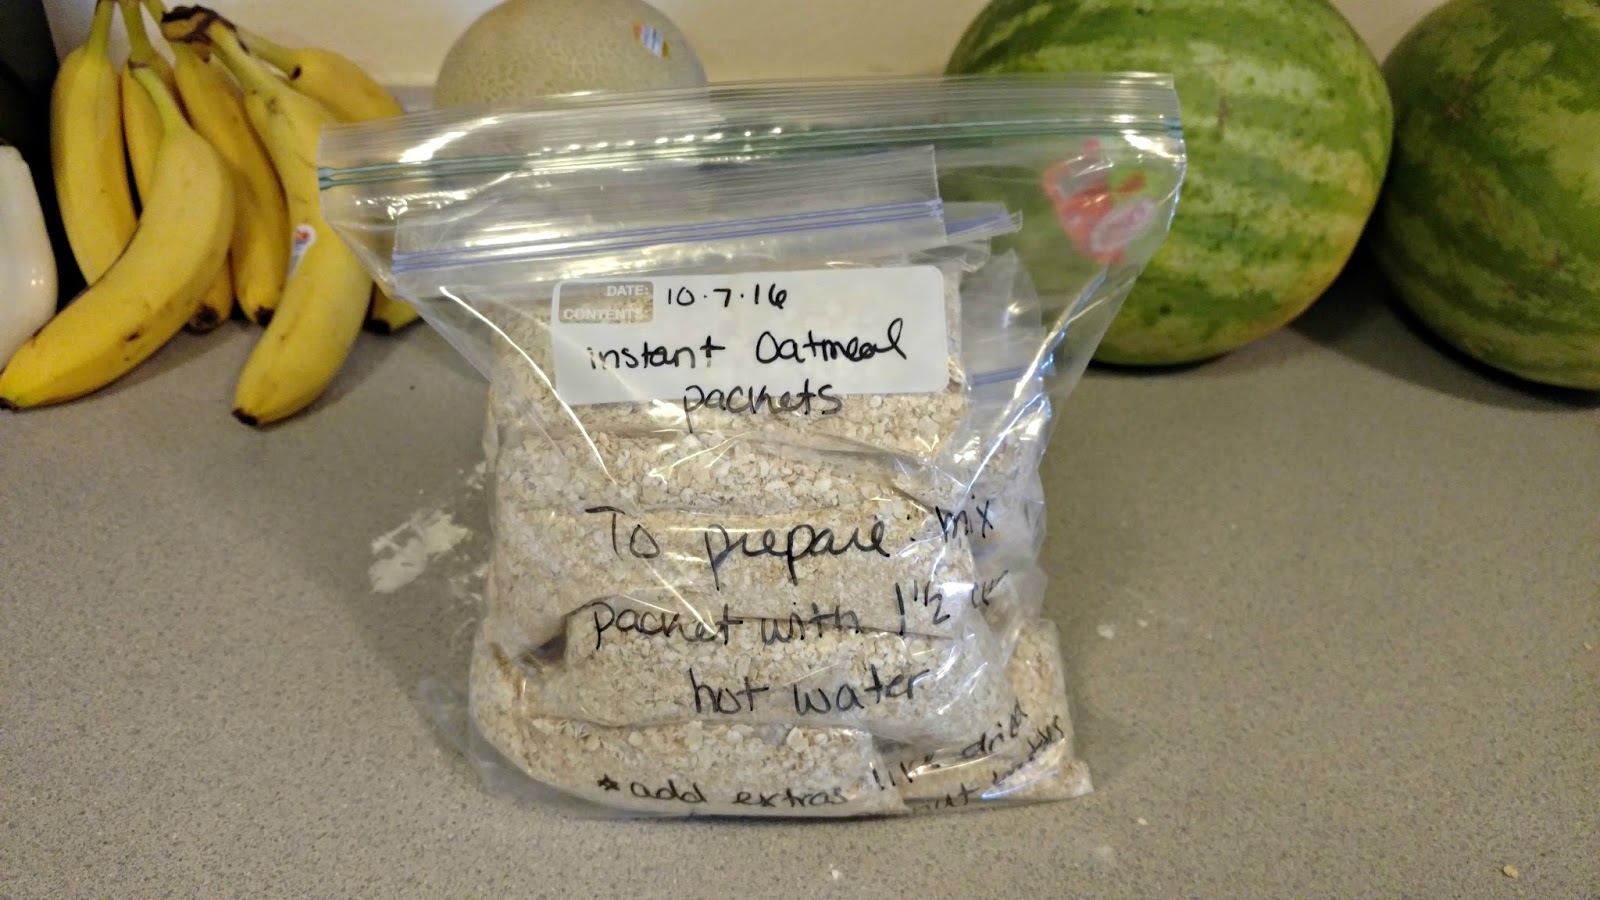 DATE: 10.7.16
CONTENTS:
instant Oatmeal
packets
To prepare: mix
packet with 1 1/2
hot water
*add extras like dried